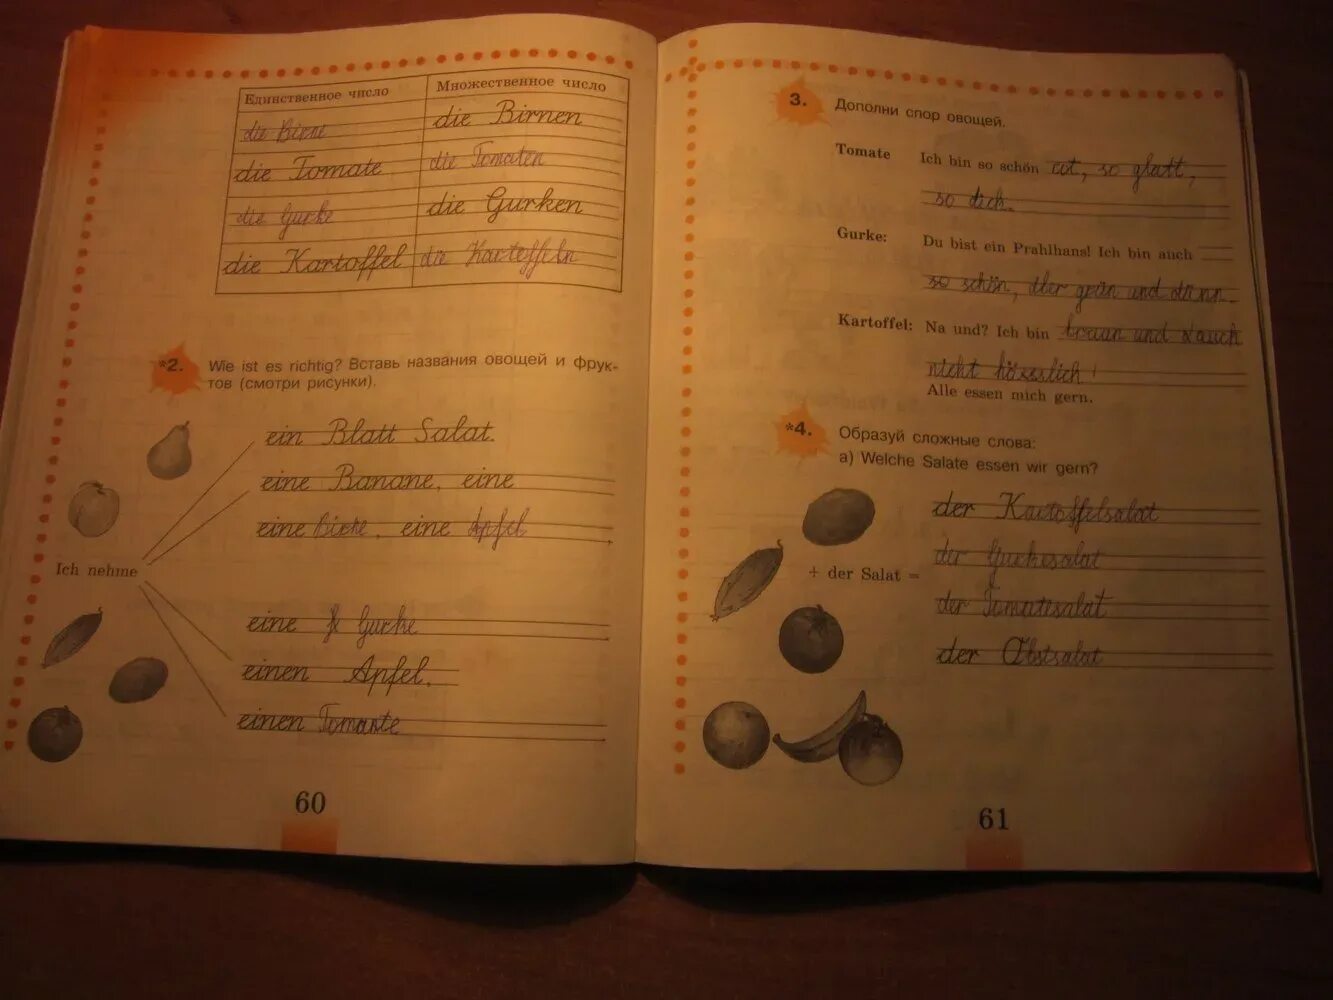 Единственное число
Множественное число
die Birne
die Birnen
die Tomate
die Tomaten
die Gurke
die Gurken
die Kartoffel
die Kartoffeln
*2. Wie ist es richtig? Вставь названия овощей и фрук-
тов (смотри рисунки).
ein Blatt Salat.
eine Banane, eine
eine Birke, eine Apfel
Ich nehme
eine Gurke
einen Apfel,
einen Tomate
60
3. Дополни спор овощей.
Tomate Ich bin so schön rot, so glatt,
so dick.
Gurke: Du bist ein Prahlhans! Ich bin auch
so schön, aber grün und dünn.
Kartoffel: Na und? Ich bin braun und auch
nicht hässlich!
Alle essen mich gern.
*4. Образуй сложные слова:
а) Welche Salate essen wir gern?
der Kartoffelsalat
der Gurkesalat
+ der Salat =
der Tomatesalat
der Obstsalat
61